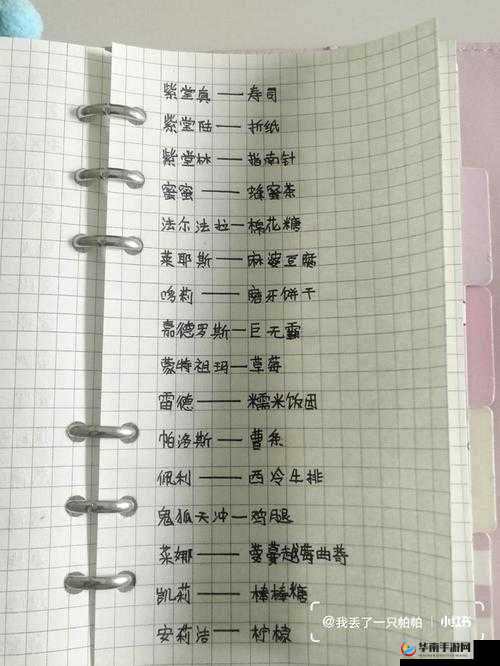 紫堂真——寿司
紫堂陆——折纸
紫堂林——指南针
蜜蜜——蜂蜜茶
法尔法拉—棉花糖
莱耶斯—麻婆豆腐
鸣莉——磨牙饼干
嘉德罗斯—巨无霸
蒙特祖玛—草莓
雷德——糯米饭团
帕洛斯——薯条
佩利——西冷牛排
鬼狐天冲—鸡腿
莱娜——蔓越莓曲奇
凯莉——棒棒糖
安莉洁——柠檬
@我丢了一只帕帕 | 小红书
华南手游网